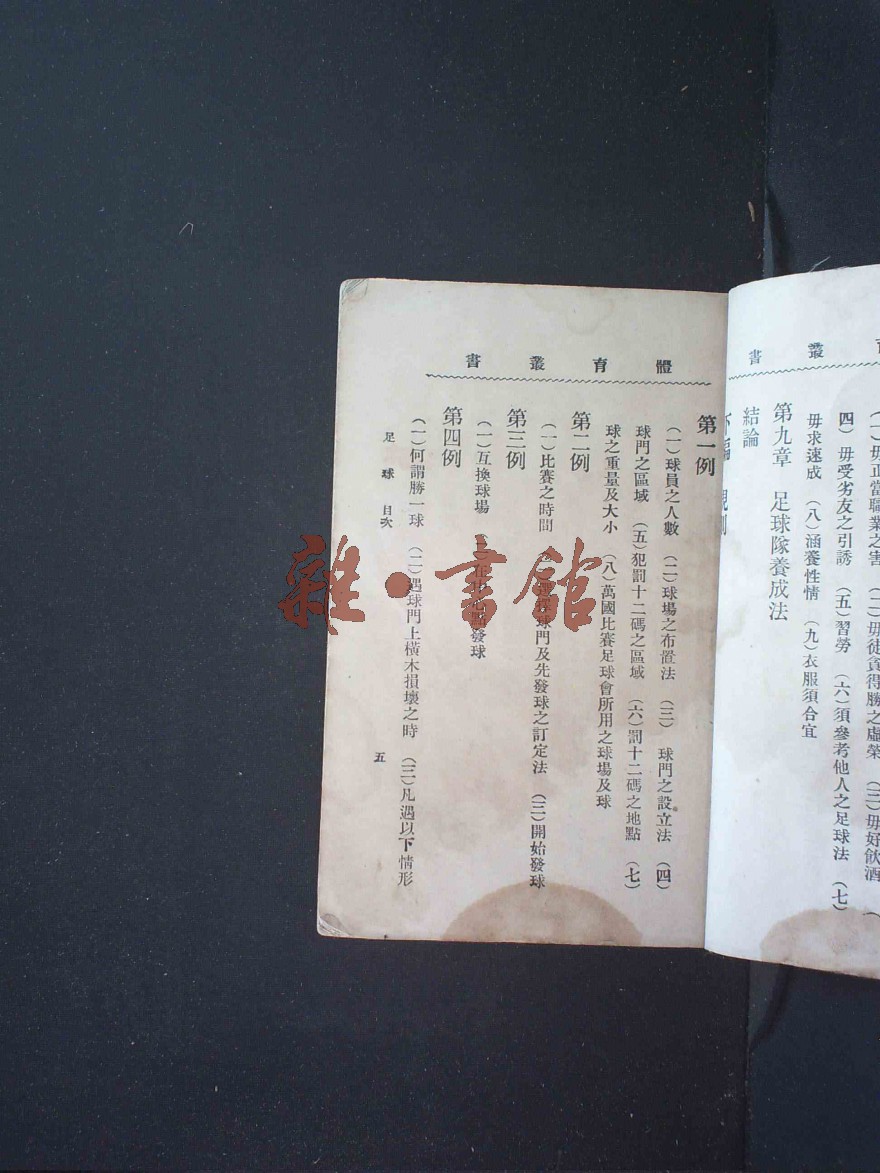 體育叢書
（一）毋正當職業之害　（二）毋徒貪得勝之虛榮　（三）毋好飲酒　（
四）毋受劣友之引誘　（五）習勞　（六）須參考他人之足球法　（七）
毋求速成　（八）涵養性情　（九）衣服須合宜
第九章　足球隊養成法
結論
下編　規則
體育叢書
第一例
（一）球員之人數　（二）球場之布置法　（三）　球門之設立法　（四）
球門之區域　（五）犯罰十二碼之區域　（六）罰十二碼之地點　（七）
球之重量及大小　（八）萬國比賽足球會所用之球場及球
第二例
（一）比賽之時間　選擇球門及先發球之訂定法　（三）開始發球
第三例
（一）互換球場　發球
第四例
（一）何謂勝一球　（二）遇球門上橫木損壞之時　（三）凡遇以下情形
足球　目次
五
雜·書館